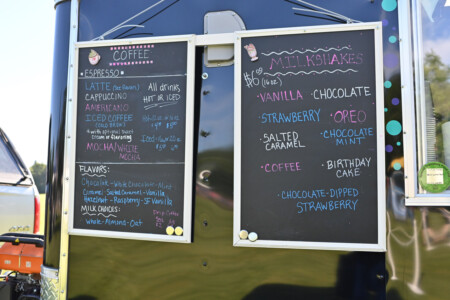 COFFEE
ESPRESSO
LATTE
CAPPUCCINO
AMERICANO
ICED COFFEE
MOCHA/WHITE
MOCHA
All drinks,
HOT or ICED
FLAVORS:
Chocolate - White Chocolate - Mint
Caramel - Salted Caramel - Vanilla
Hazelnut - Raspberry - SF Vanilla
MILK CHOICES:
whole - Almond - Oat
Drip Coffee
MILKSHAKES
(16oz.)
•VANILLA •CHOCOLATE
•STRAWBERRY •OREO
•SALTED CARAMEL •CHOCOLATE MINT
•COFFEE •BIRTHDAY CAKE
•CHOCOLATE-DIPPED
STRAWBERRY